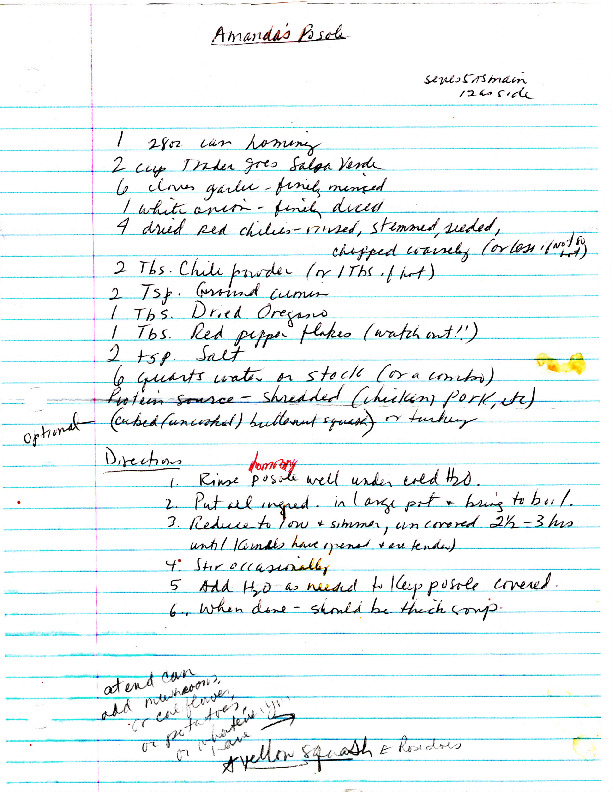 Amanda's Posole
serves 5 as main
12 as side
1 28oz can hominy
2 cup Trader Joes Salsa Verde
6 cloves garlic - finely minced
1 white onion - finely diced
4 dried red chilies - rinsed, stemmed, seeded,
chopped coarsely (or less if not so hot)
2 Tbs. Chile powder (or 1 Tbs. if hot)
2 Tsp. Ground cumin
1 Tbs. Dried Oregano
1 Tbs. Red pepper flakes (watch out!!)
2 tsp. Salt
6 quarts water or stock (or a combo)
Protein source - shredded (chicken, pork, etc)
Optional - (cubed (uncooked) butternut squash) or turkey
Directions
hominy
1. Rinse posole well under cold H2O.
2. Put all ingred. in large pot + bring to boil.
3. Reduce to low + simmer, uncovered 2½ - 3 hrs
until kernals have opened + are tender)
4. Stir occasionally
5 Add H2O as needed to keep posole covered.
6. When done - should be thick soup.
at end can
add mushrooms,
or cauliflower,
or potatoes,
or whatever you
have
yellow squash &